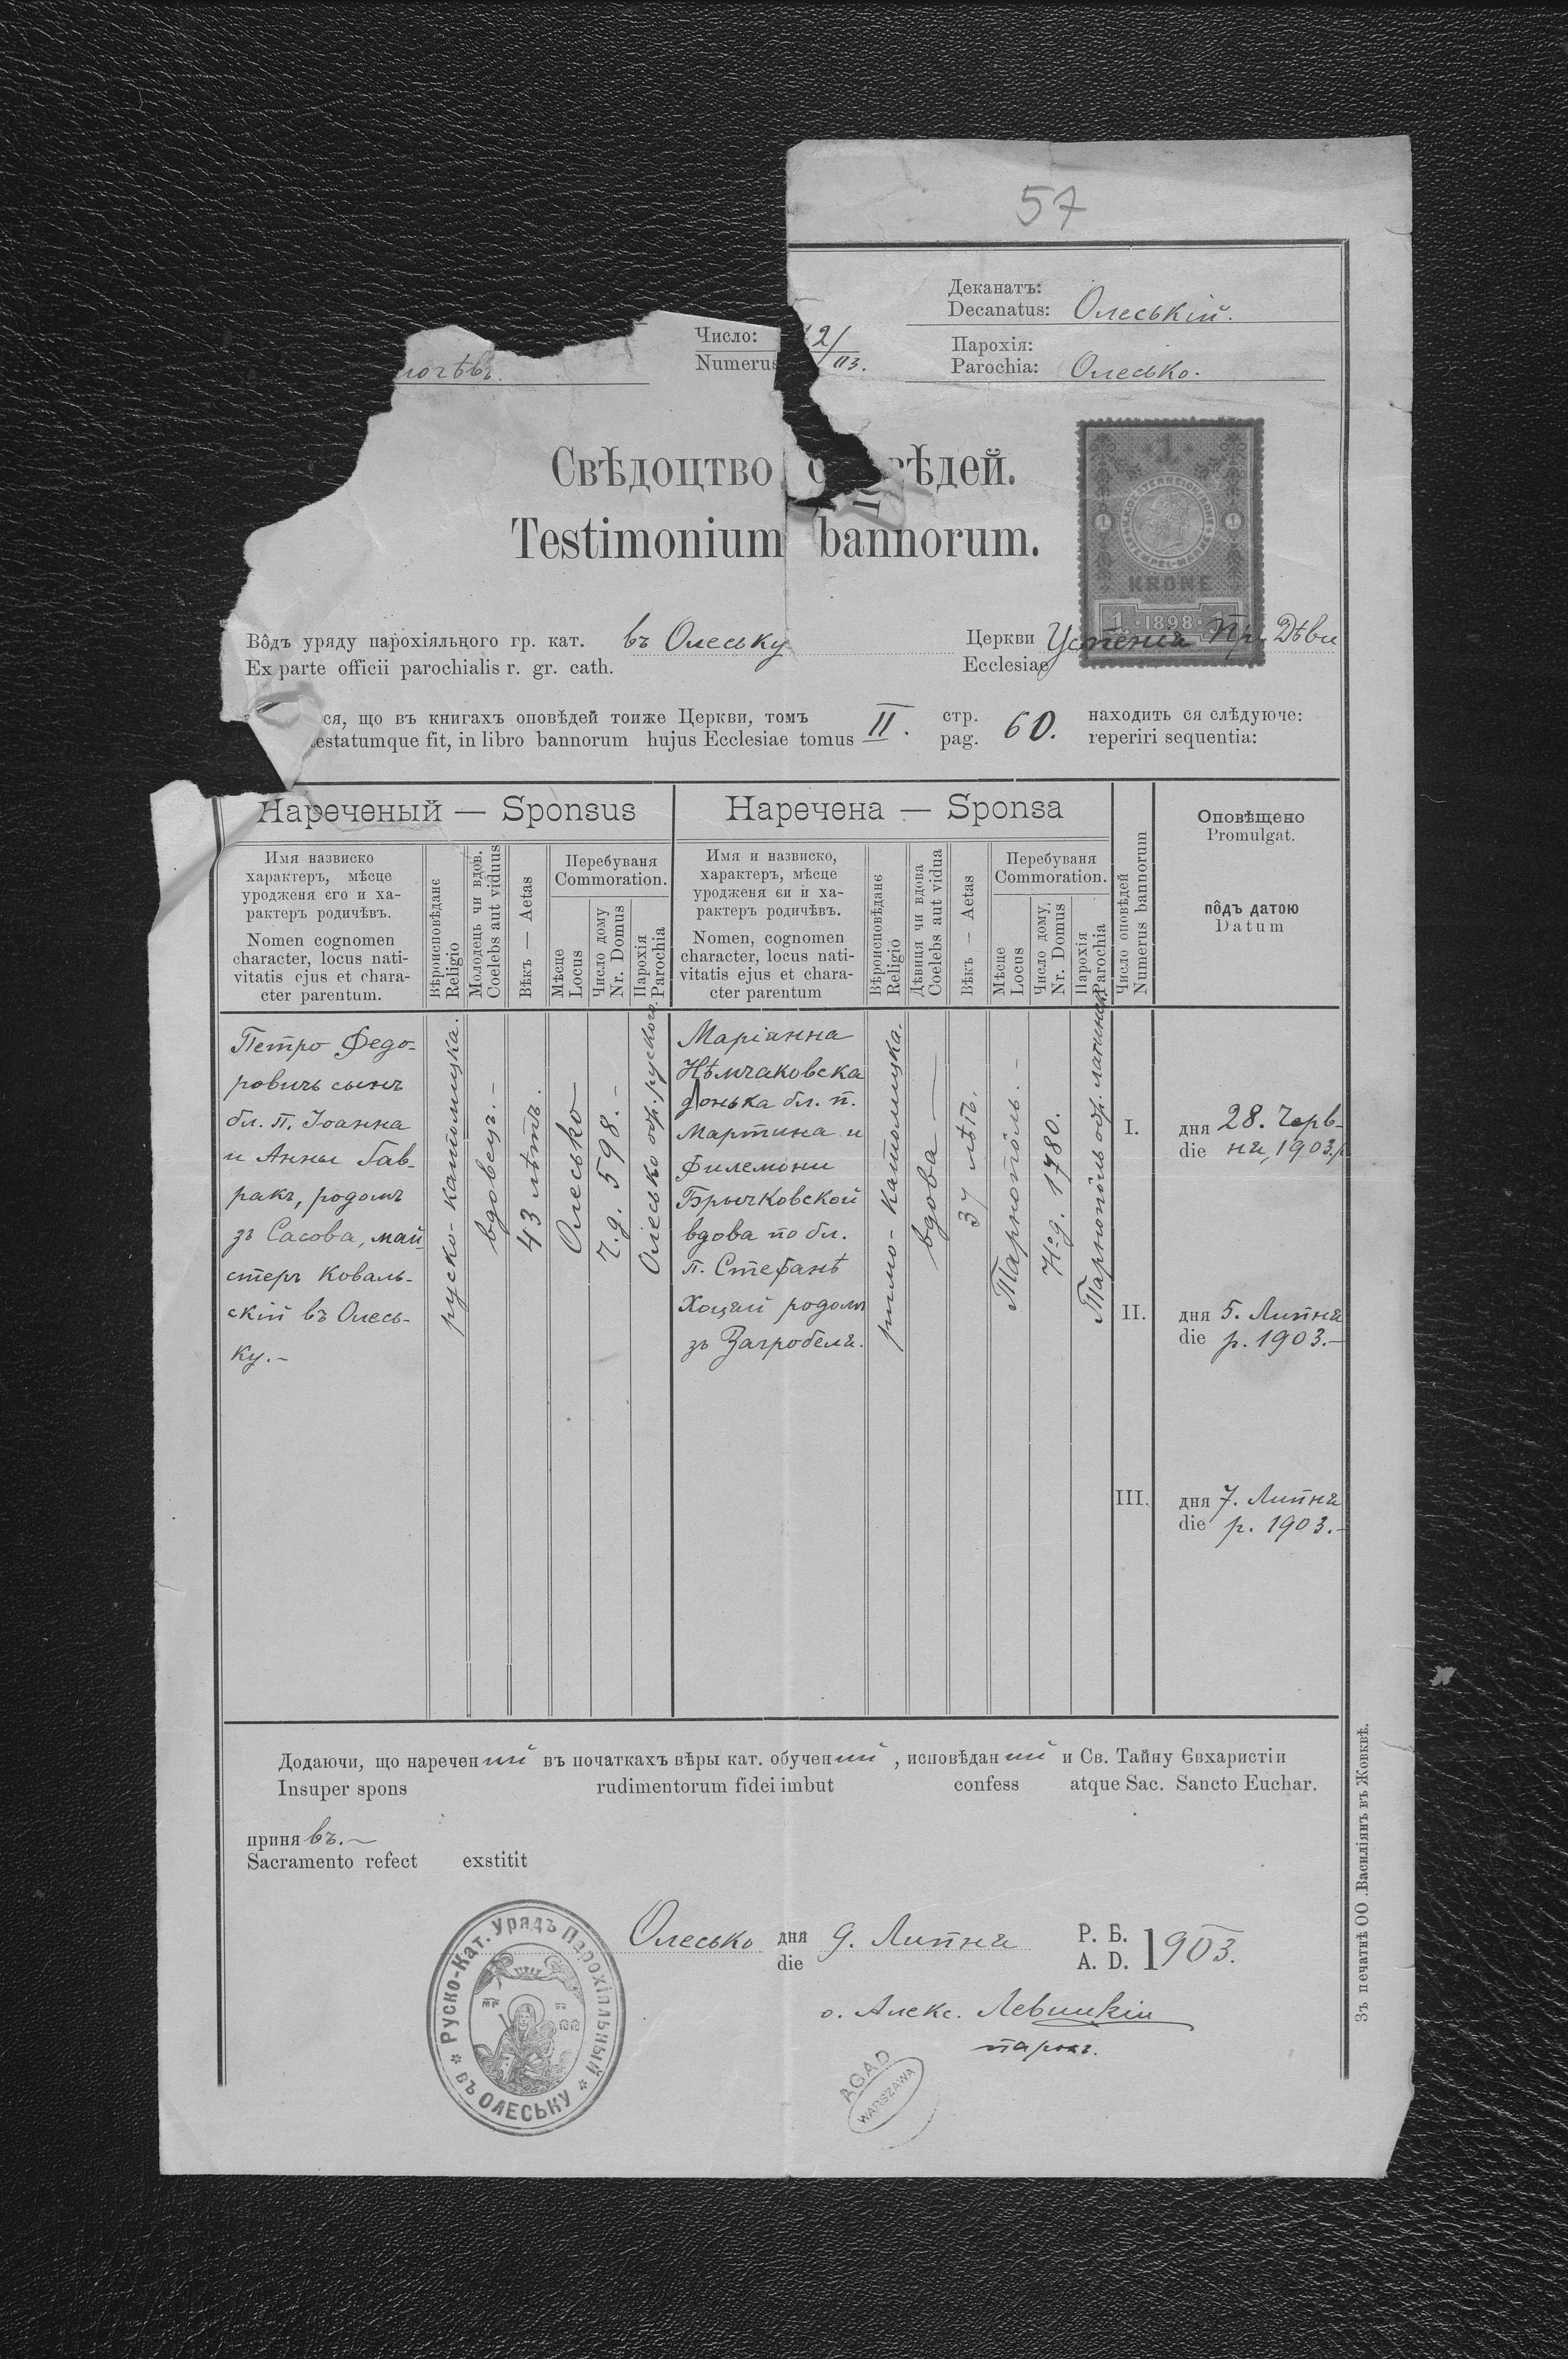 57
Деканатъ:
Decanatus: Олеській.
Число: 2/
Numerus 113.
Парохія:
Parochia: Олесько.
Свѣдоцтво вѣдей.
Testimonium bannorum.
1
К.К. OESTERREICHISCHE STEMPEL-MARKE
1 1
KRONE
1 1898 1
Вôдъ уряду парохіяльного гр. кат. въ Олеську Церкви Успенія Пр. Дѣвы
Ex parte officii parochialis r. gr. cath. Ecclesiae
ся, що въ книгахъ оповѣдей тоиже Церкви, томъ II. стр. 60. находить ся слѣдуюче:
testatumque fit, in libro bannorum hujus Ecclesiae tomus pag. reperiri sequentia:
Нареченый — Sponsus
Имя назвиско
характеръ, мѣсце
уродженя єго и ха-
рактеръ родичѣвъ.
Nomen cognomen
character, locus nati-
vitatis ejus et chara-
cter parentum.
Вѣроисповѣданє
Religio
Молодець чи вдов.
Coelebs aut viduus
Вѣкъ — Aetas
Перебуваня
Commoration.
Мѣсце
Locus
Число дому
Nr. Domus
Парохія
Parochia
Наречена — Sponsa
Имя и назвиско,
характеръ, мѣсце
уродженя єи и ха-
рактеръ родичѣвъ.
Nomen, cognomen
character, locus nati-
vitatis ejus et chara-
cter parentum
Вѣроисповѣданє
Religio
Дѣвиця чи вдова
Coelebs aut vidua
Вѣкъ — Aetas
Перебуваня
Commoration.
Мѣсце
Locus
Число дому,
Nr. Domus
Парохія
Parochia
Число оповѣдей
Numerus bannorum
Оповѣщено
Promulgat.
пôдъ датою
Datum
Петро Федо-
ровичъ сынъ
бл. п. Іоанна
и Анны Гав-
ракъ, родомъ
зъ Сасова, май-
стеръ коваль-
скій въ Олесь-
ку.-
руско-католицка.
вдовець.-
43 лѣтъ.
Олесько
ч.д. 598.-
Олесько обр. руского.
Маріянна
Нѣмчаковска
донька бл. п.
Мартина и
Филемоны
Брычковской
вдова по бл.
п. Стефанѣ
Хоцій родомъ
зъ Загробеля.
римо-католицка.
вдова —
37 лѣтъ.
Тарнопôль.-
Н°д. 1780.
Тарнопôль обр. латинск.
I. дня 28. Черв-
die ня, 1903.р
II. дня 5. Липня
die р. 1903.-
III. дня 7. Липня
die р. 1903.-
Додаючи, що нареченый въ початкахъ вѣры кат. обученый, исповѣданый и Св. Тайну Євхаристіи
Insuper spons rudimentorum fidei imbut confess atque Sac. Sancto Euchar.
принявъ.-
Sacramento refect exstitit
Олесько дня 9. Липня Р. Б. 1903.
die A. D.
о. Алекс. Левицкій
парохъ.
Руско-Кат. Урядъ Парохіяльный
въ Олеську
AGAD
WARSZAWA
Зъ печатнѣ ОО.Василіянъ въ Жовквѣ.